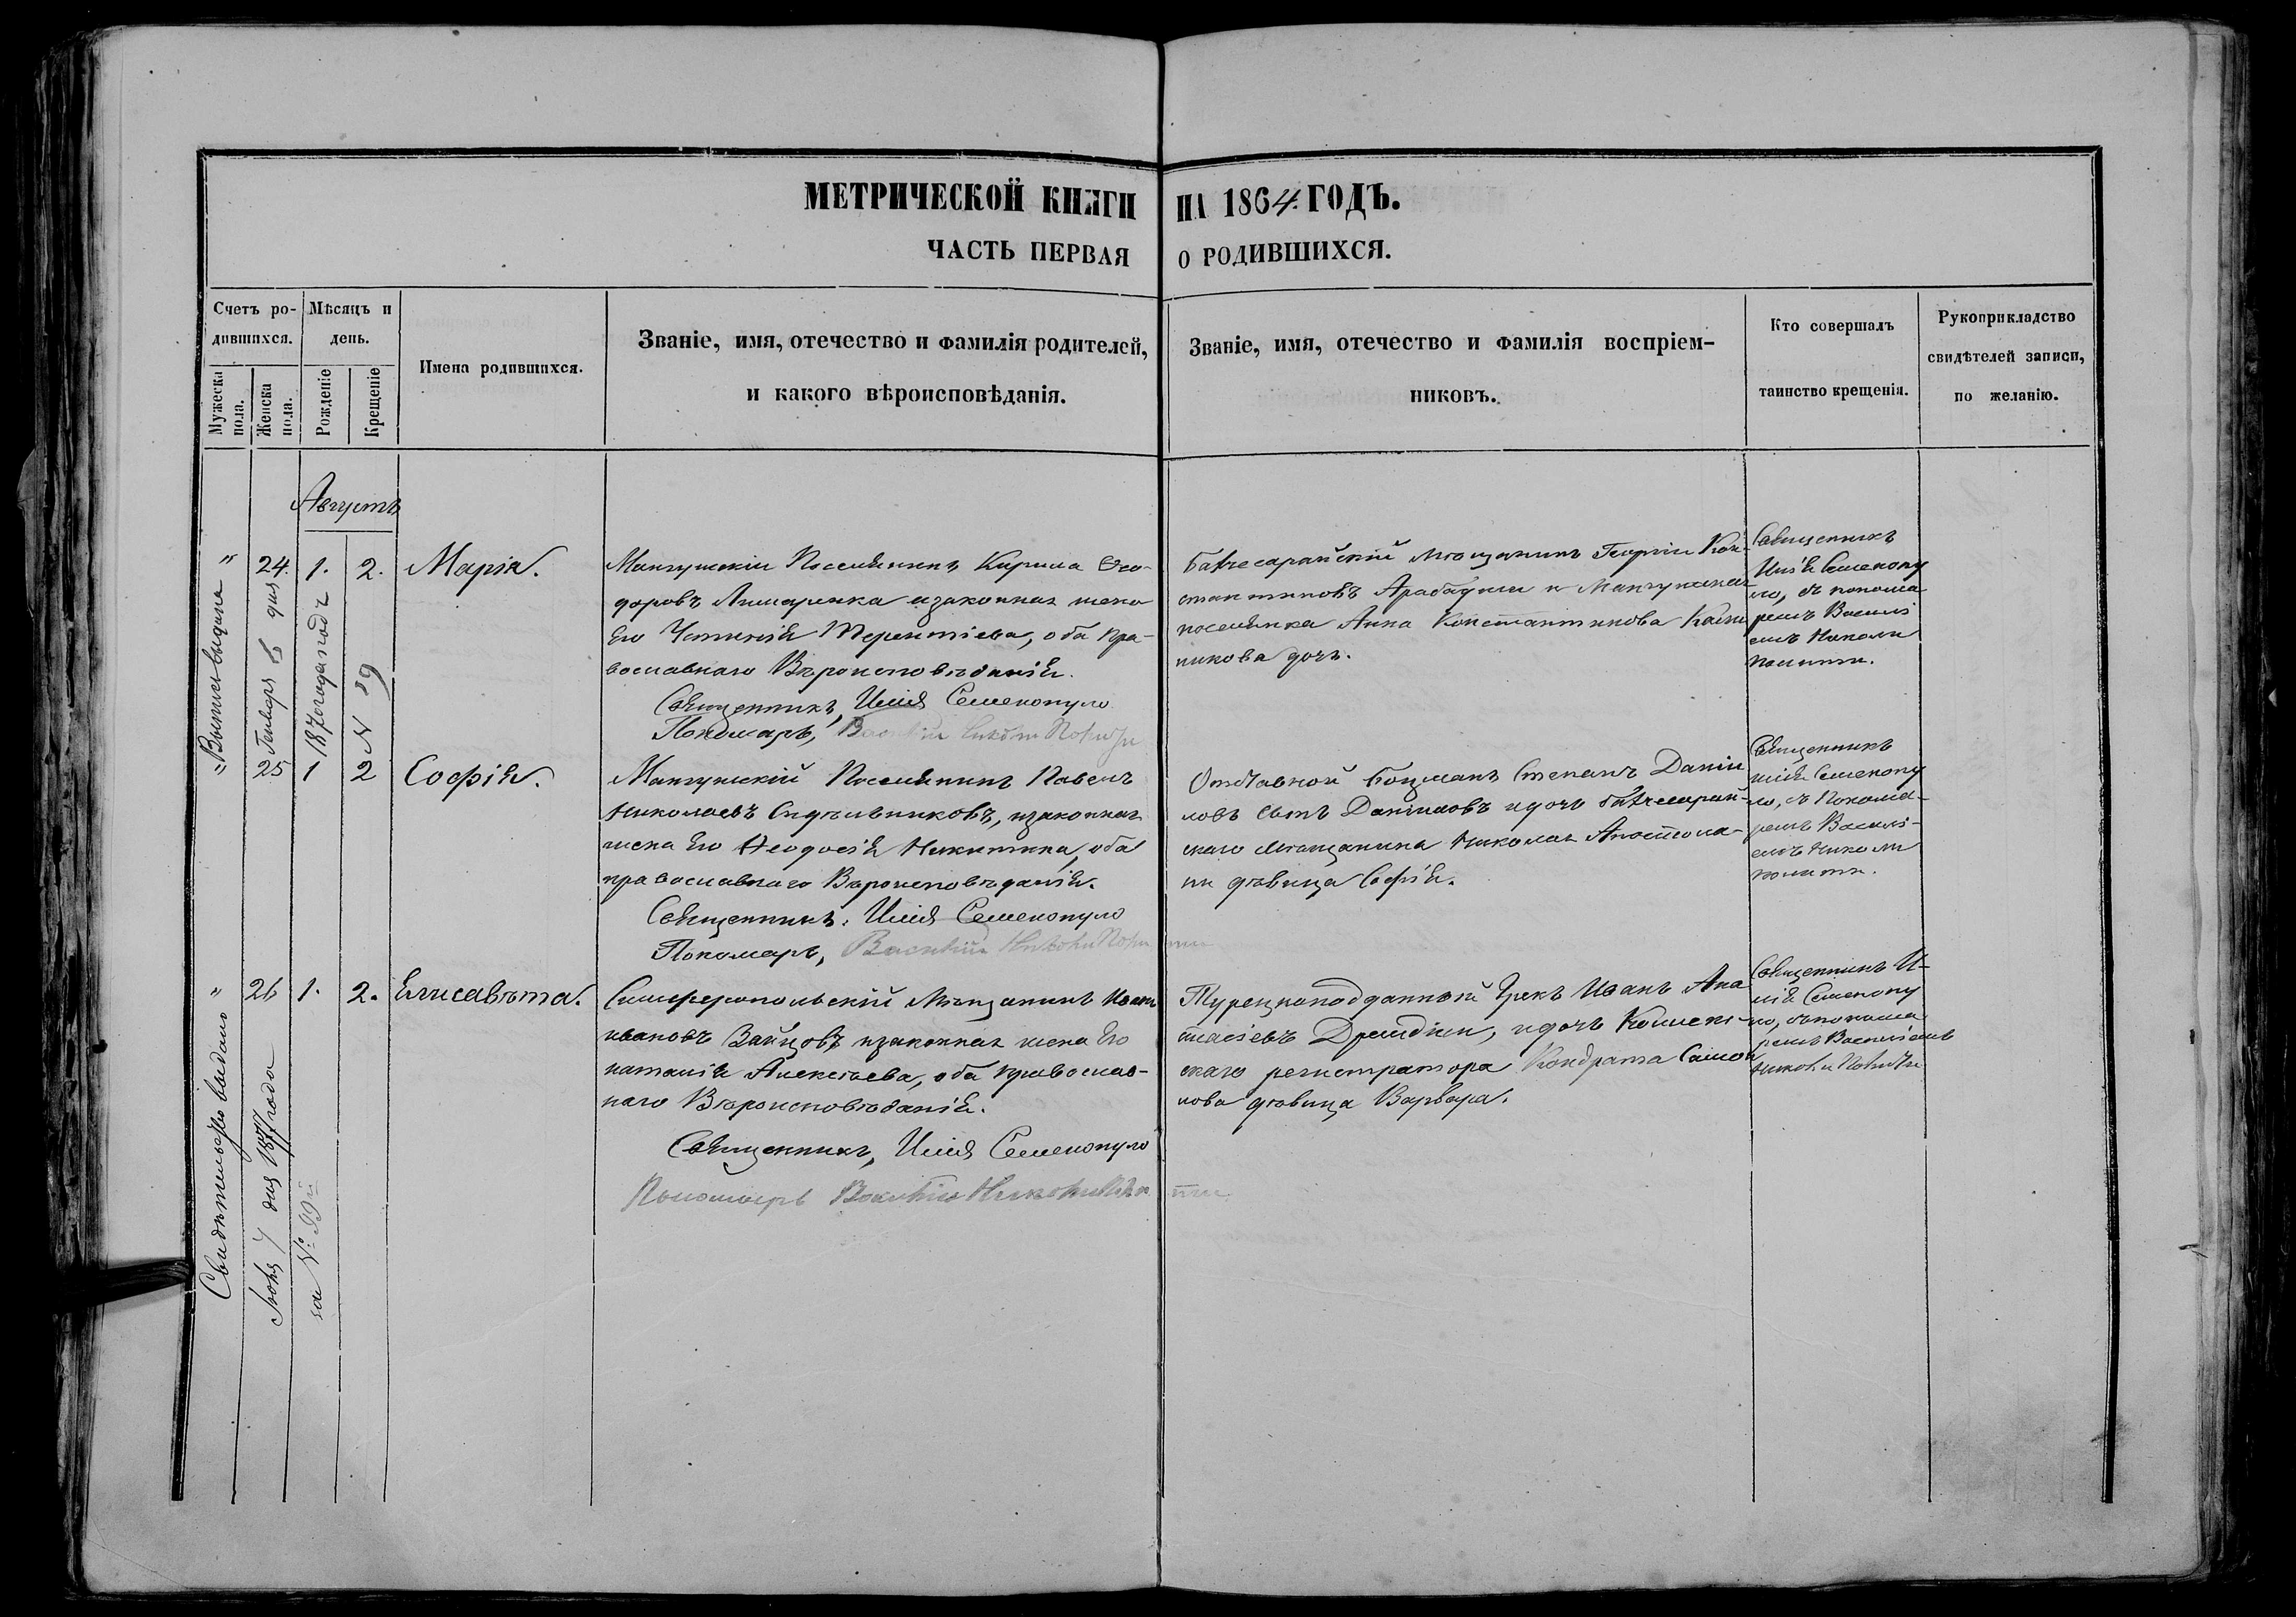 МЕТРИЧЕСКОЙ КНИГИ НА 1864. ГОДЪ.
ЧАСТЬ ПЕРВАЯ О РОДИВШИХСЯ.
Счетъ ро-
дившихся.
Мужеска
пола.
Женска
пола.
Мѣсяцъ и
день.
Рожденіе
Крещеніе
Имена родившихся.
Званіе, имя, отечество и фамилія родителей,
и какого вѣроисповѣданія.
Званіе, имя, отечество и фамилія воспріем-
никовъ.
Кто совершалъ
таинство крещенія.
Рукоприкладство
свидѣтелей записи,
по желанію.
Августъ
" 24. 1. 2. Марія.
Мангушскій Поселянинъ Кирила Ѳео-
доровъ и законная жена
Его Терентіева, оба пра-
вославнаго Вѣроисповѣданія.
Священникъ, Илія Семенопуло
Пономарь,
Бахчесарайскій мѣщанинъ Георгій Кон-
стантиновъ и Мангушская
поселянка Анна Константинова
никова дочь.
Священникъ
Илія Семенопу
ло, съ понома
ремъ Василі
емъ Николи
полити.
" 25 1 2 Софія.
Мангушскій Поселянинъ Павелъ
Николаевъ и законная
жена Его Ѳеодосія Никитина, оба
православнаго Вѣроисповѣданія.
Священникъ, Илія Семенопуло
Пономарь, Василій
Отставной Боцманъ Степанъ Даніи
ловъ сынъ Даниловъ и дочь бахчисарай-
скаго мѣщанина Николая Апостола-
ки дѣвица Софія.
Священникъ
Илія Семенопу
ло, съ Понома-
ремъ Василі-
емъ Николи
полити.
" 26 1. 2. Елисавѣта.
Симферопольскій Мѣщанинъ Иванъ
Ивановъ и законная жена Его
Наталія Алексѣева, оба православ-
наго Вѣроисповѣданія.
Священникъ, Илія Семенопуло
Пономарь Василій
Турецкоподданный Грекъ Иванъ Ана
стасіевъ и дочь Коллеж-
скаго регистратора Кондрата Самой
лова дѣвица Варвара.
Священникъ И-
лія Семенопу
ло, съ понома
ремъ Василіемъ
Выпись выдана
Генваря 6 дня
187 года подъ
N 29
Свидѣтельство выдано
Іюня 7 дня 1877 года
за №: 99й